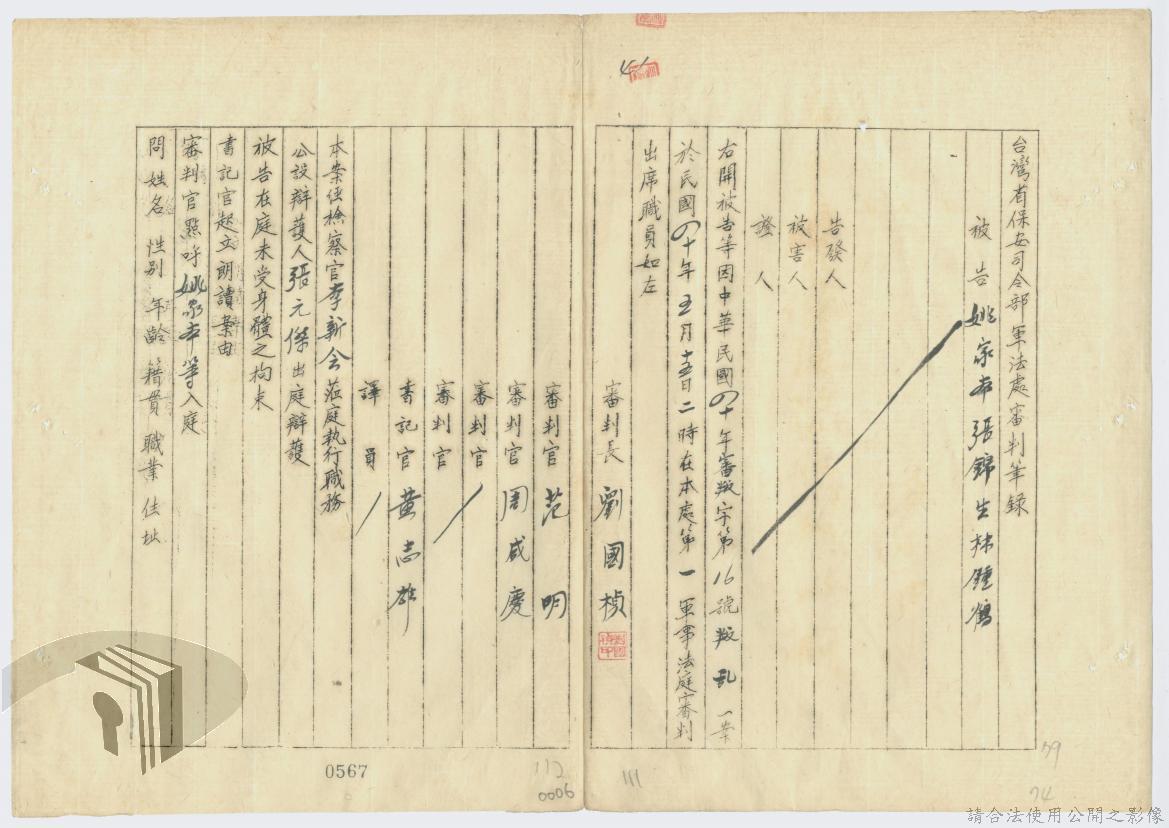 41
台灣省保安司令部軍法處審判筆錄
被告姚家本張錦生林鍾鶴
告發人
被害人
證人
右開被告等因中華民國四十年審叛字第16號叛乱一案
於民國四十年五月十五日二時在本處第一軍事法庭審判
出席職員如左
審判長 劉國楨
審判官 范明
審判官 周咸慶
審判官
審判官
書記官 黃志雄
譯員
本案任檢察官李新会蒞庭執行職務
公設辯護人張元傑出庭辯護
被告在庭未受身體之拘束
書記官起立朗讀案由
審判官點呼姚家本等入庭
問姓名 性別 年齡 籍貫 職業 住址
0567
112
0006
111
74
請合法使用公開之影像